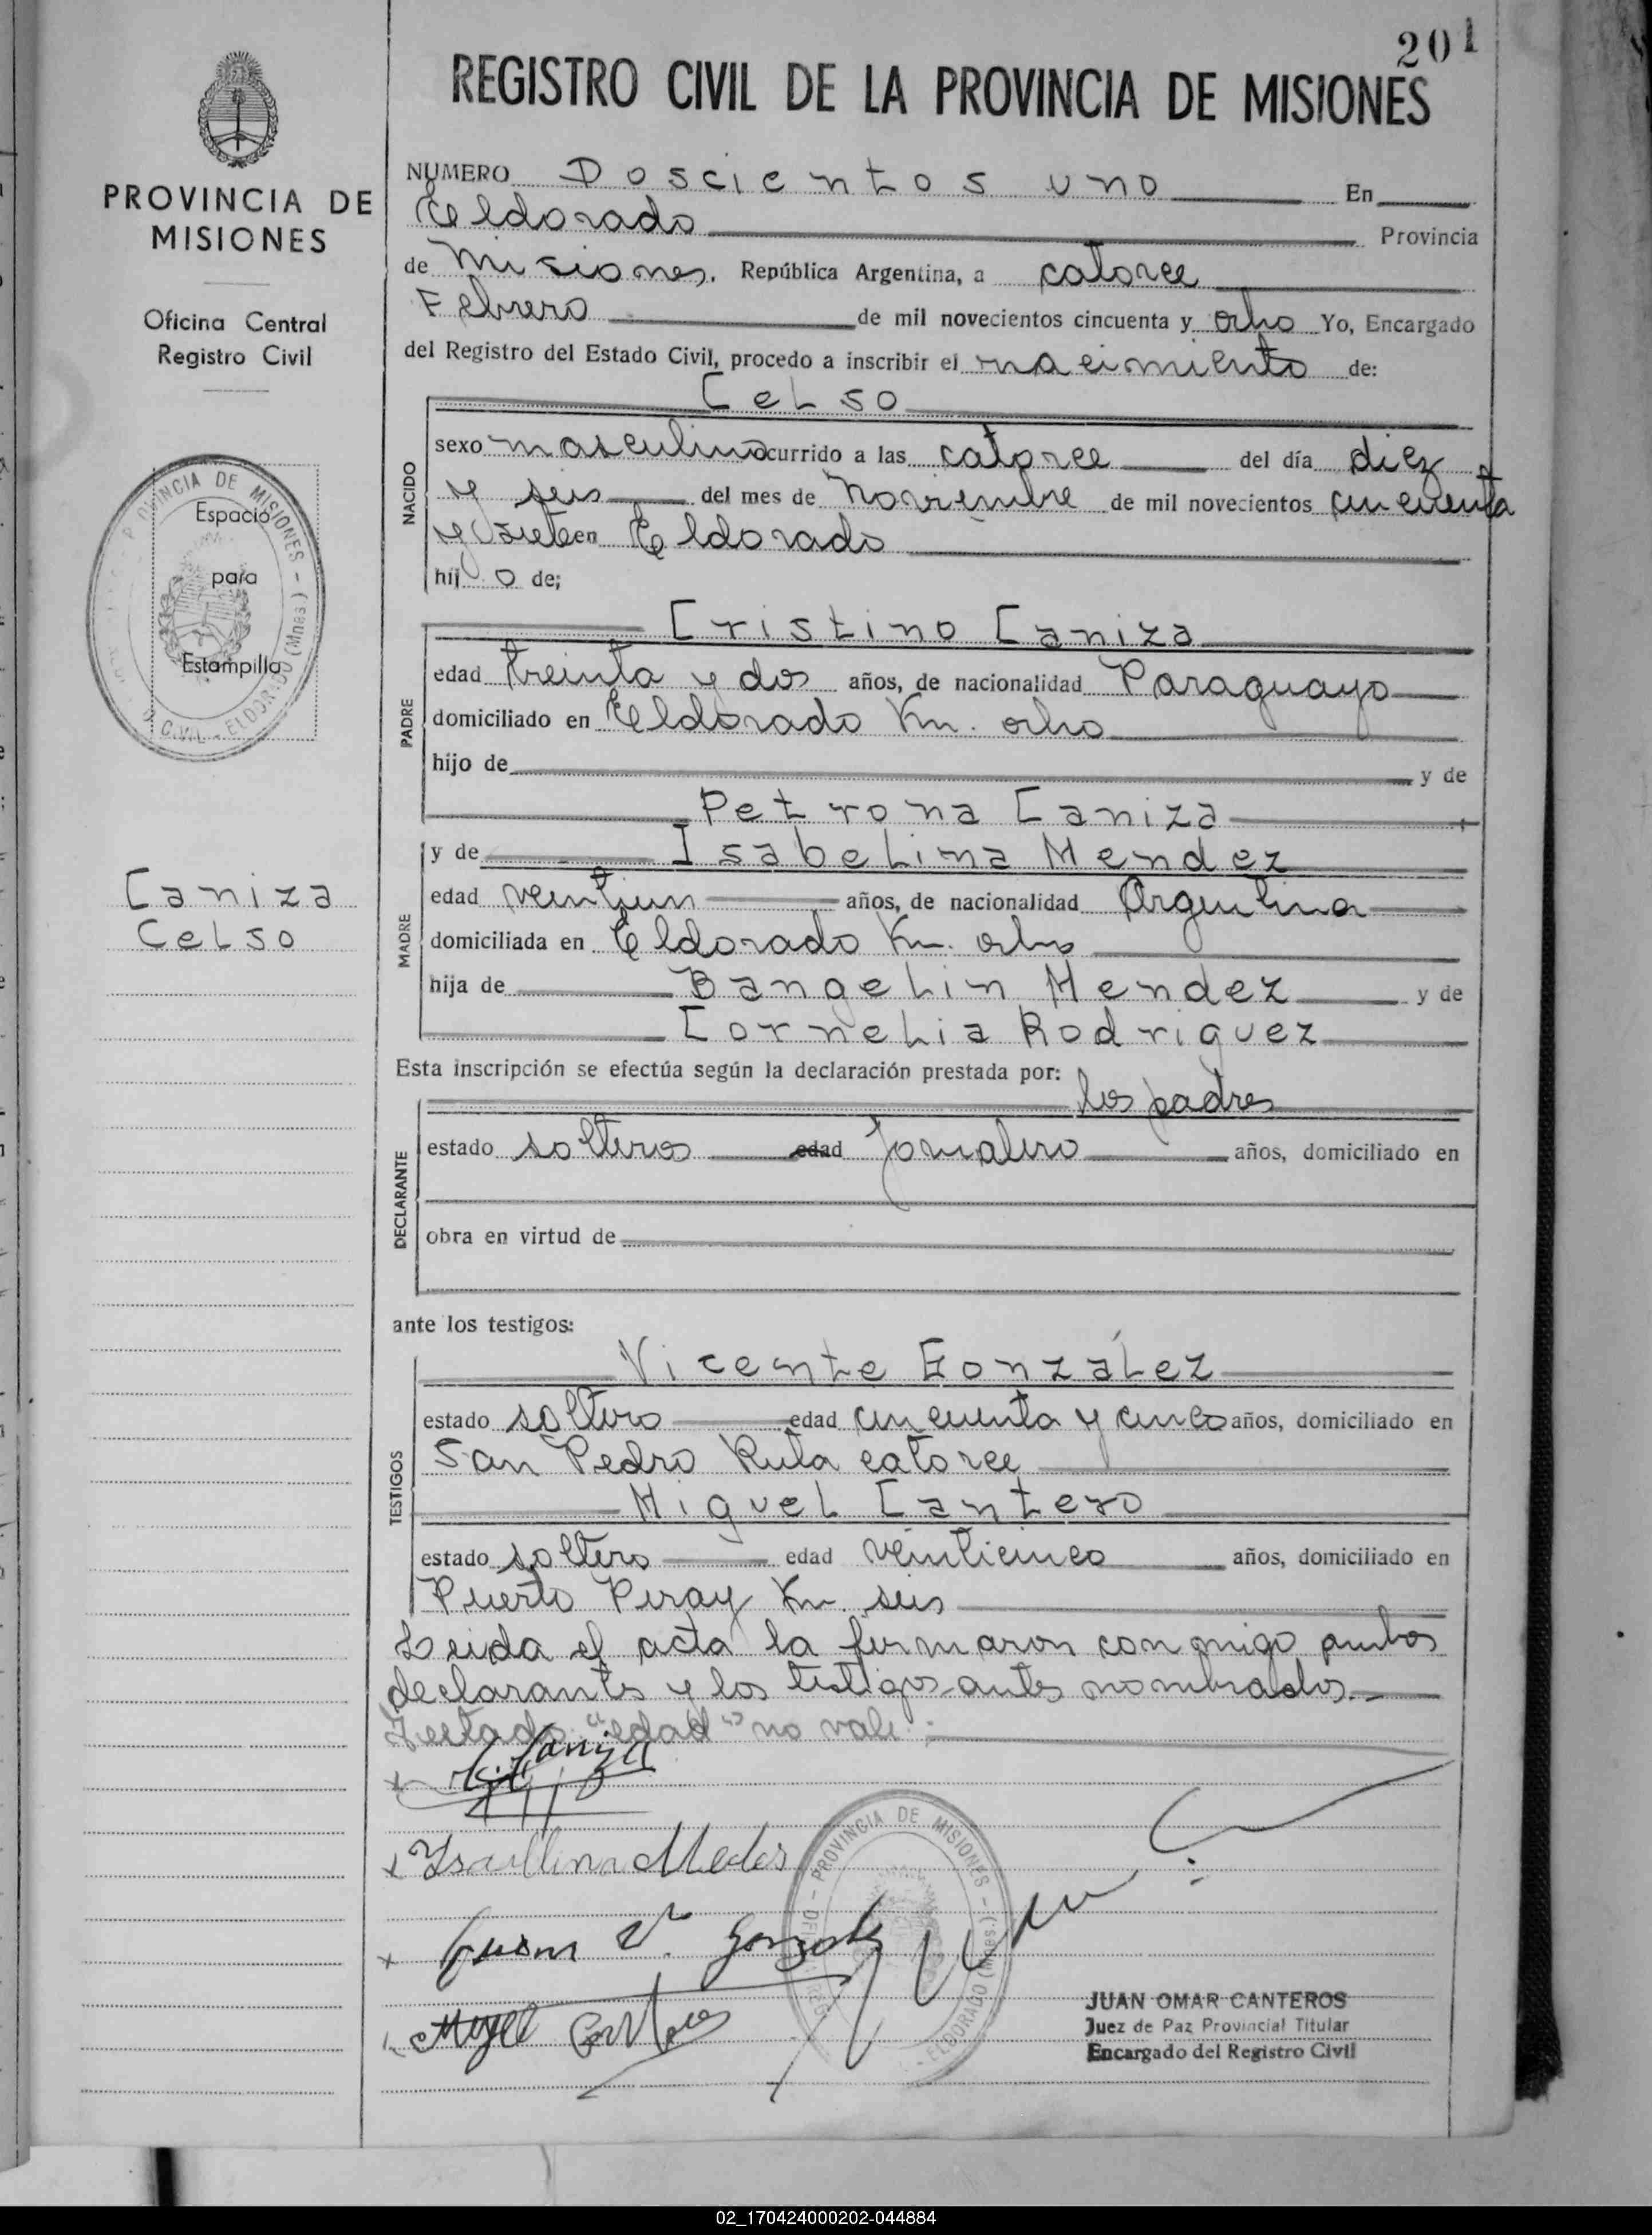 201
REGISTRO CIVIL DE LA PROVINCIA DE MISIONES
PROVINCIA DE
MISIONES
Oficina Central
Registro Civil
Espacio
para
Estampilla
PROVINCIA DE MISIONES - ELDORADO (Mnes.)
Caniza
Celso
NUMERO Doscientos uno En
Eldorado Provincia
de Misiones. República Argentina, a catorce
Febrero de mil novecientos cincuenta y ocho Yo, Encargado
del Registro del Estado Civil, procedo a inscribir el nacimiento de:
NACIDO
Celso
sexo masculino ocurrido a las catorce del día diez
y seis del mes de Noviembre de mil novecientos cincuenta
y siete en Eldorado
hijo de;
PADRE
Cristino Caniza
edad treinta y dos años, de nacionalidad Paraguayo
domiciliado en Eldorado Km. ocho
hijo de y de
Petrona Caniza
MADRE
y de Isabelina Mendez
edad veintiun años, de nacionalidad Argentina
domiciliada en Eldorado Km. ocho
hija de Bangelin Mendez y de
Cornelia Rodriguez
Esta inscripción se efectúa según la declaración prestada por:
los padres
DECLARANTE
estado solteros edad Jornalero años, domiciliado en
obra en virtud de
ante los testigos:
TESTIGOS
Vicente González
estado soltero edad cincuenta y cinco años, domiciliado en
San Pedro Ruta catorce
Miguel Cantero
estado soltero edad veinticinco años, domiciliado en
Puerto Piray Km. seis
Leida el acta la firmaron conmigo ambos
declarantes y los testigos antes nombrados.
Testado: "edad" no vale.
Caniza
PROVINCIA DE MISIONES - ELDORADO (Mnes.)
JUAN OMAR CANTEROS
Juez de Paz Provincial Titular
Encargado del Registro Civil
02_170424000202-044884